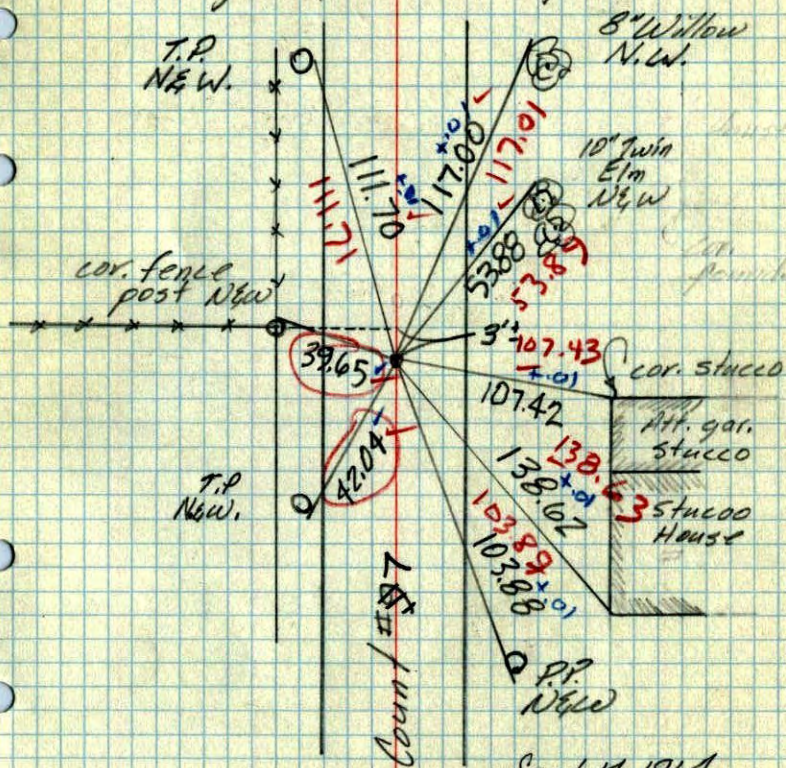 T.P.
N&W.
8" Willow
N.W.
10" Twin
Elm
N&W
111.70
+.01
111.71
117.00
+.01
117.01
53.88
+.01
53.89
cor. fence
post N&W
3'±
39.65
107.43
+.01
107.42
cor. stucco
Att. gar.
stucco
42.04
138.63
+.01
138.62
Stucoo
House
T.P
N&W.
103.89
+.01
103.88
P.P.
N&W
Count #